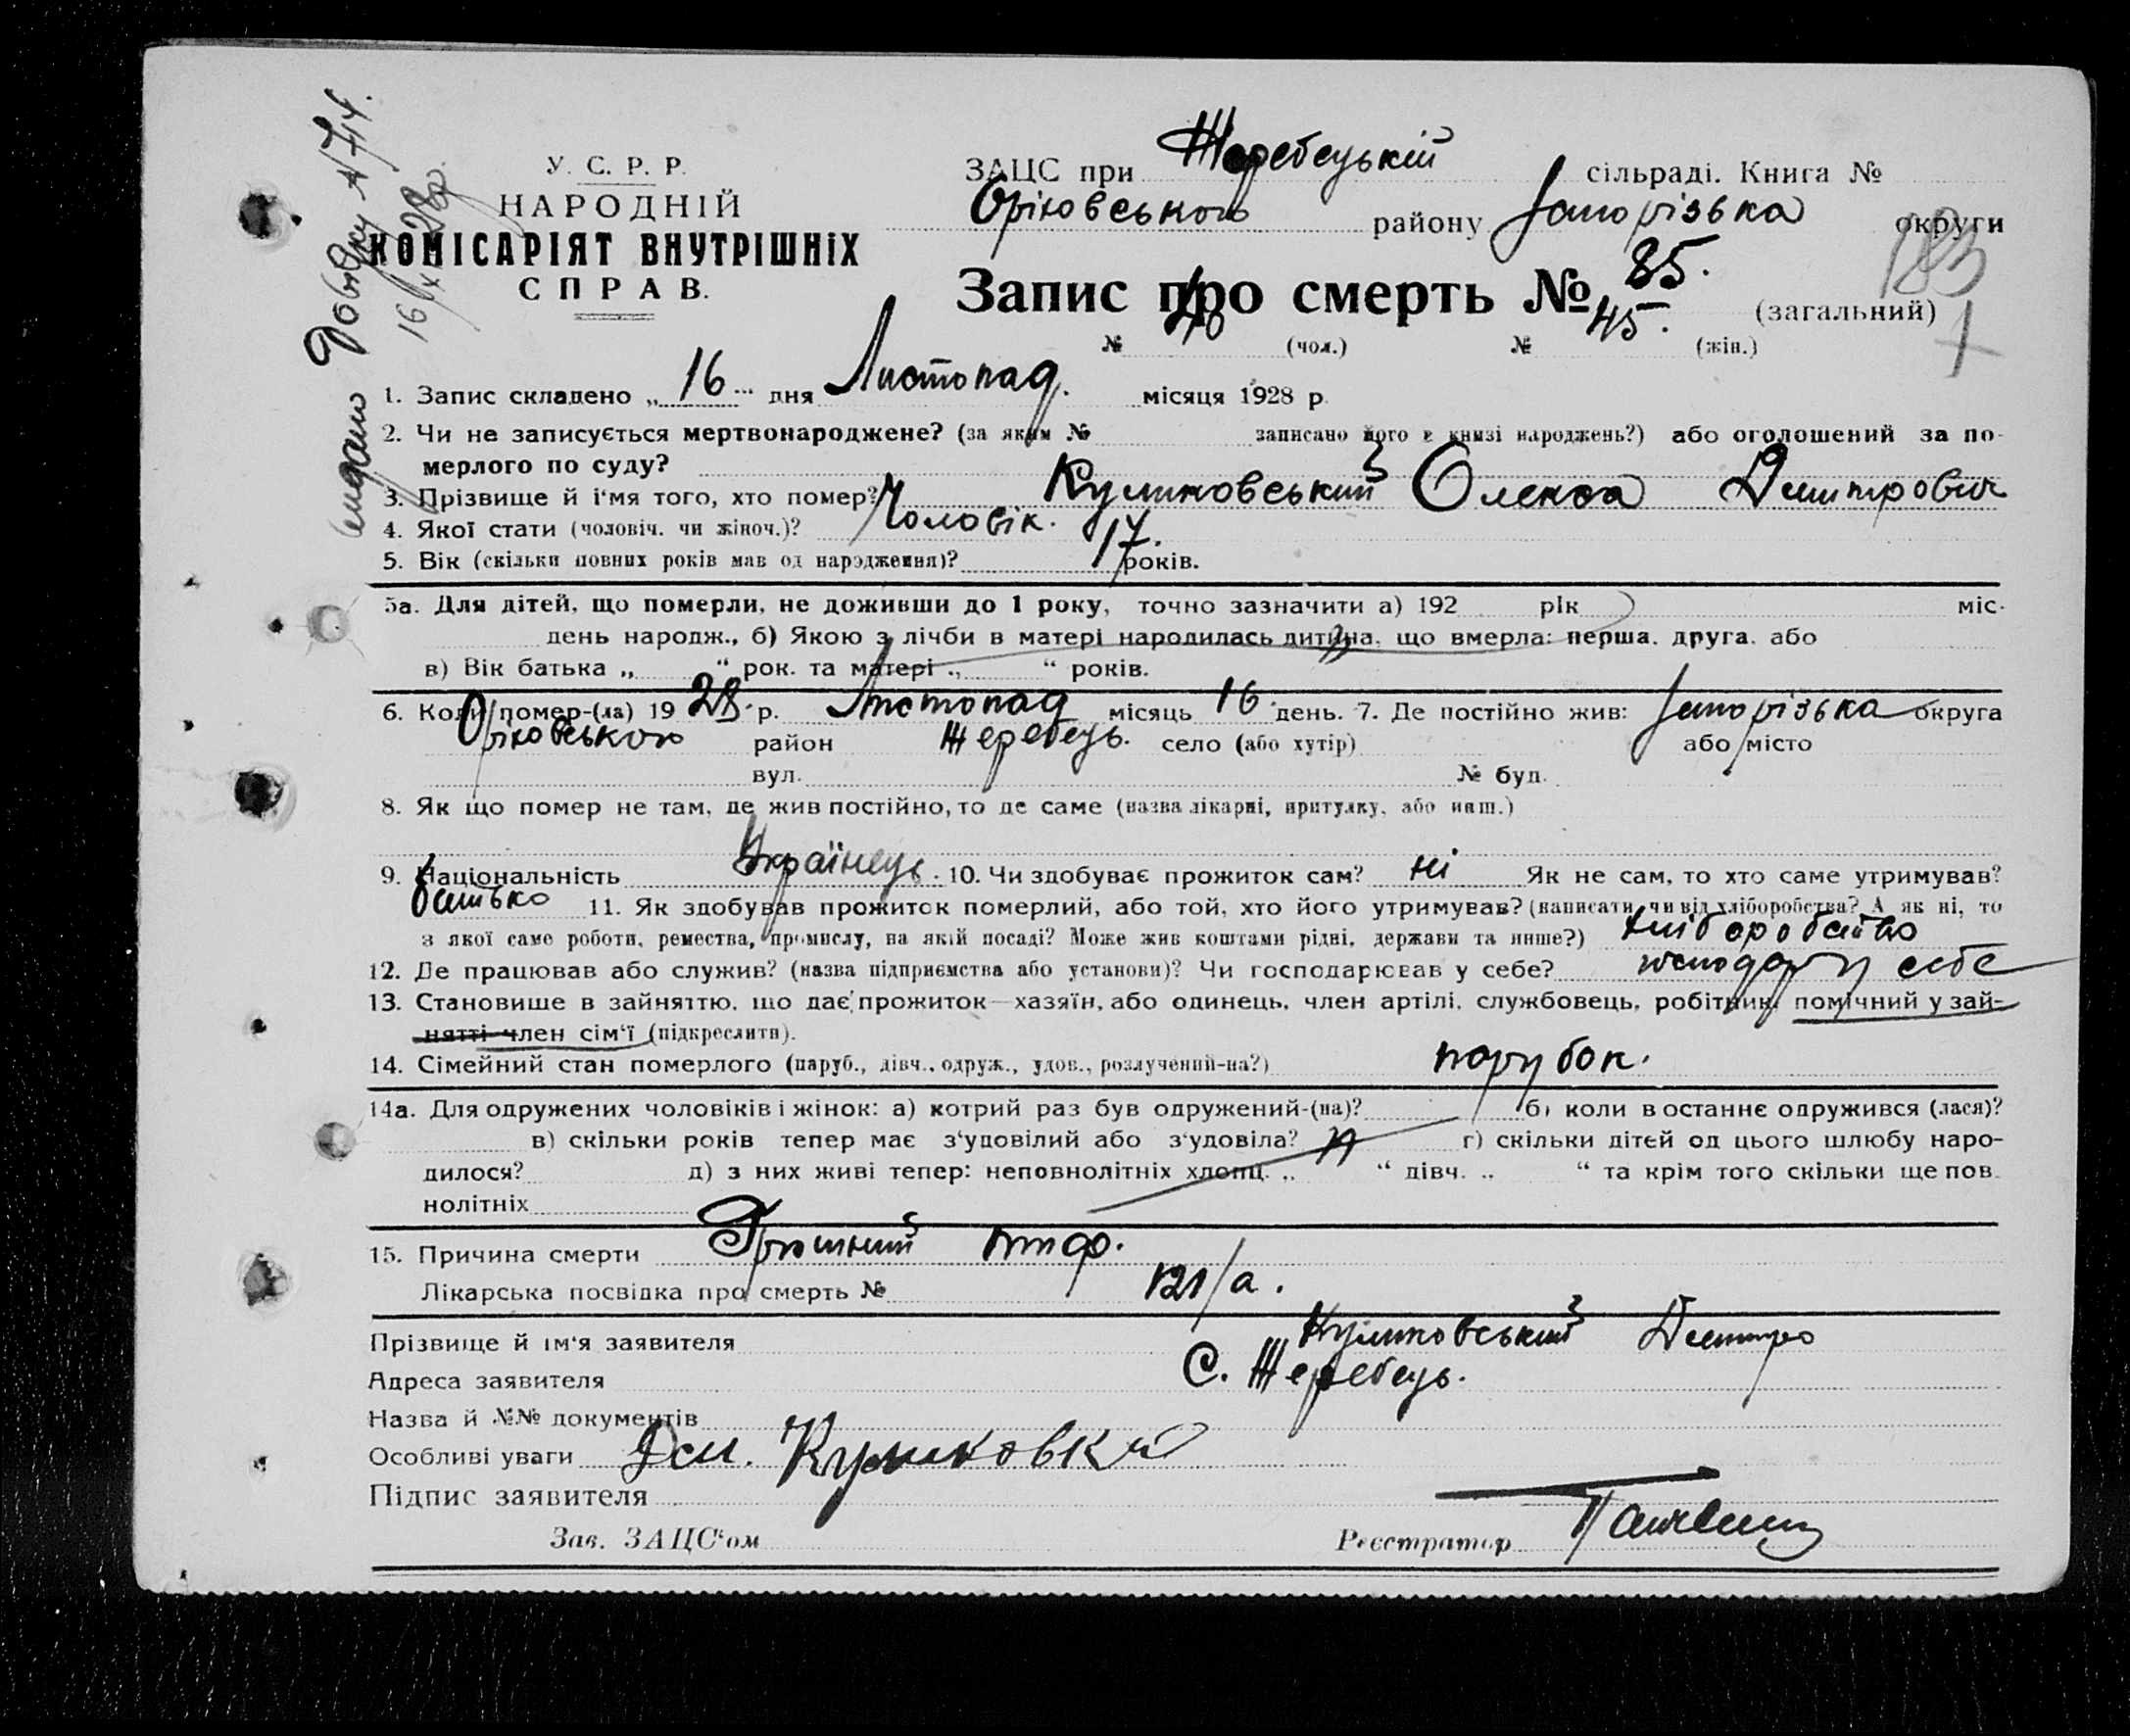 видано Довідку № 714.
16/XI 28 р.
У. С. Р. Р.
НАРОДНІЙ
КОМІСАРІЯТ ВНУТРІШНІХ
СПРАВ.
ЗАЦС при Жеребецькій сільраді. Книга №
Оріховського району Запорізька округи
183
Запис про смерть № 85. (загальний)
№ 40 (чол.) № 45. (жін.)
1. Запис складено „ 16 " дня Листопад. місяця 1928 р.
2. Чи не записується мертвонароджене? (за яким № записано його в книзі народжень?) або оголошений за по-
мерлого по суду?
3. Прізвище й ім'я того, хто помер? Куликовський Олекса Дмитрович
4. Якої стати (чоловіч. чи жіноч.)? Чоловік.
5. Вік (скільки повних років мав од народження)? 17. років.
5а. Для дітей, що померли, не доживши до 1 року, точно зазначити а) 192 рік міс.
день народж., б) Якою з лічби в матері народилась дитина, що вмерла: перша, друга, або
в) Вік батька „ “ рок. та матері „ “ років.
6. Коли помер-(ла) 1928 р. Листопад місяць 16 день. 7. Де постійно жив: Запорізька округа
Оріховського район Жеребець. село (або хутір) або місто
вул. № буд.
8. Як що помер не там, де жив постійно, то де саме (назва лікарні, притулку, або инш.)
9. Національність Українець. 10. Чи здобуває прожиток сам? ні Як не сам, то хто саме утримував?
батько 11. Як здобував прожиток померлий, або той, хто його утримував? (написати, чи від хліборобства? А як ні, то
з якої саме роботи, ремества, промислу, на якій посаді? Може жив коштами рідні, держави та инше?) хліборобство
12. Де працював або служив? (назва підприємства або установи)? Чи господарював у себе? господар у себе
13. Становище в зайняттю, що дає прожиток—хазяїн, або одинець, член артілі, службовець, робітник, помічний у зай-
нятті член сім'ї (підкреслити).
14. Сімейний стан померлого (паруб., дівч., одруж., удов., розлучений-на?) парубок.
14а. Для одружених чоловіків і жінок: а) котрий раз був одружений-(на)? б) коли востаннє одружився (лася)?
в) скільки років тепер має з'удовілий або з'удовіла? г) скільки дітей од цього шлюбу наро-
дилося? д) з них живі тепер: неповнолітніх хлопц. „ “ дівч. „ “ та крім того скільки ще пов-
нолітніх
15. Причина смерти тиф.
Лікарська посвідка про смерть № 121/а.
Прізвище й ім'я заявителя Куликовський Дмитро
Адреса заявителя С. Жеребець.
Назва й №№ документів
Особливі уваги
Підпис заявителя
Зав. ЗАЦС'ом Реєстратор